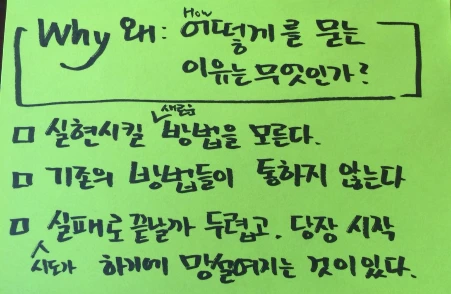 Why 왜: How 어떻게를 묻는
이유는 무엇인가?
□ 실현시킬 새로운 방법을 모른다.
□ 기존의 방법들이 통하지 않는다
□ 실패로 끝날까 두렵고, 당장 시작
시도가 하기에 망설여지는 것이 있다.